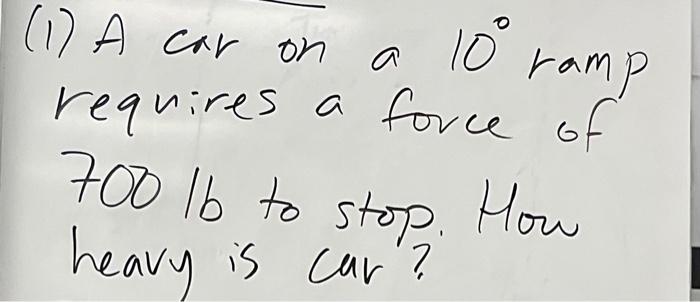 (1) A car on a 10° ramp
requires a force of
700 lb to stop. How
heavy is car?